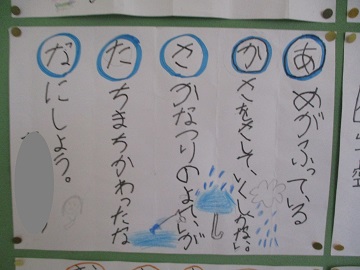 あめがふっている
かさをさして、いくしかない。
さかなつりのよていが
たちまちかわったな
なにしよう。